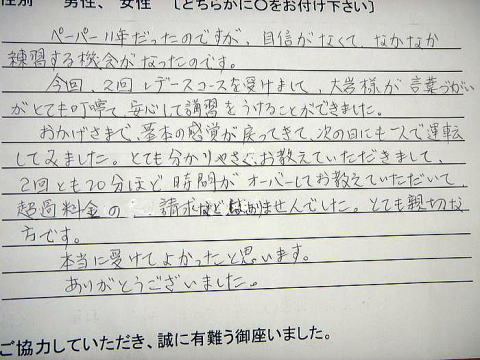 性別　　男性、　女性　〔どちらかに〇をお付け下さい〕
ペーパー11年だったのですが、自信がなくて、なかなか
練習する機会がなかったのです。
今回、2回レデースコースを受けまして、大岩様が言葉づかい
がとても叮嚀で、安心して講習をうけることができました。
おかげさまで、基本の感覚が戻ってきて、次の日にも一人で運転
してみました。とても分かりやすく、お教えていただきまして、
2回とも20分ほど時間がオーバーしてお教えていただいて、
超過料金の　請求などはありませんでした。とても親切な
方です。
本当に受けてよかったと思います。
ありがとうございました。
ご協力していただき、誠に有難う御座いました。